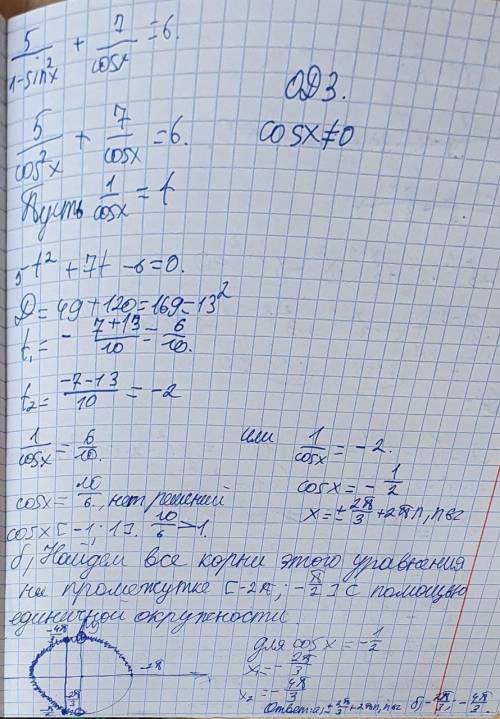 5/(1-sin²x) + 7/cosx = 6.
ОДЗ.
5/cos²x + 7/cosx = 6.
cosx≠0
Пусть 1/cosx = t
5t² + 7t - 6 = 0.
D = 49 + 120 = 169 = 13²
t₁ = -7+13/10 = 6/10.
t₂ = -7-13/10 = -2
1/cosx = 6/10. или 1/cosx = -2.
cosx = 10/6, нет решений cosx = -1/2
cosx [-1; 1]. 10/6 > 1. x = ±2π/3 + 2πn, n∈z
б) Найдем все корни этого уравнения
на промежутке [-2π; -π/2] с помощью
единичной окружности.
-4π/3
-2π
для cosx = -1/2
x₁ = -2π/3
x₂ = -4π/3
-2π/3
Ответ: а) ±2π/3 + 2πn, n∈z б) -2π/3; -4π/3.